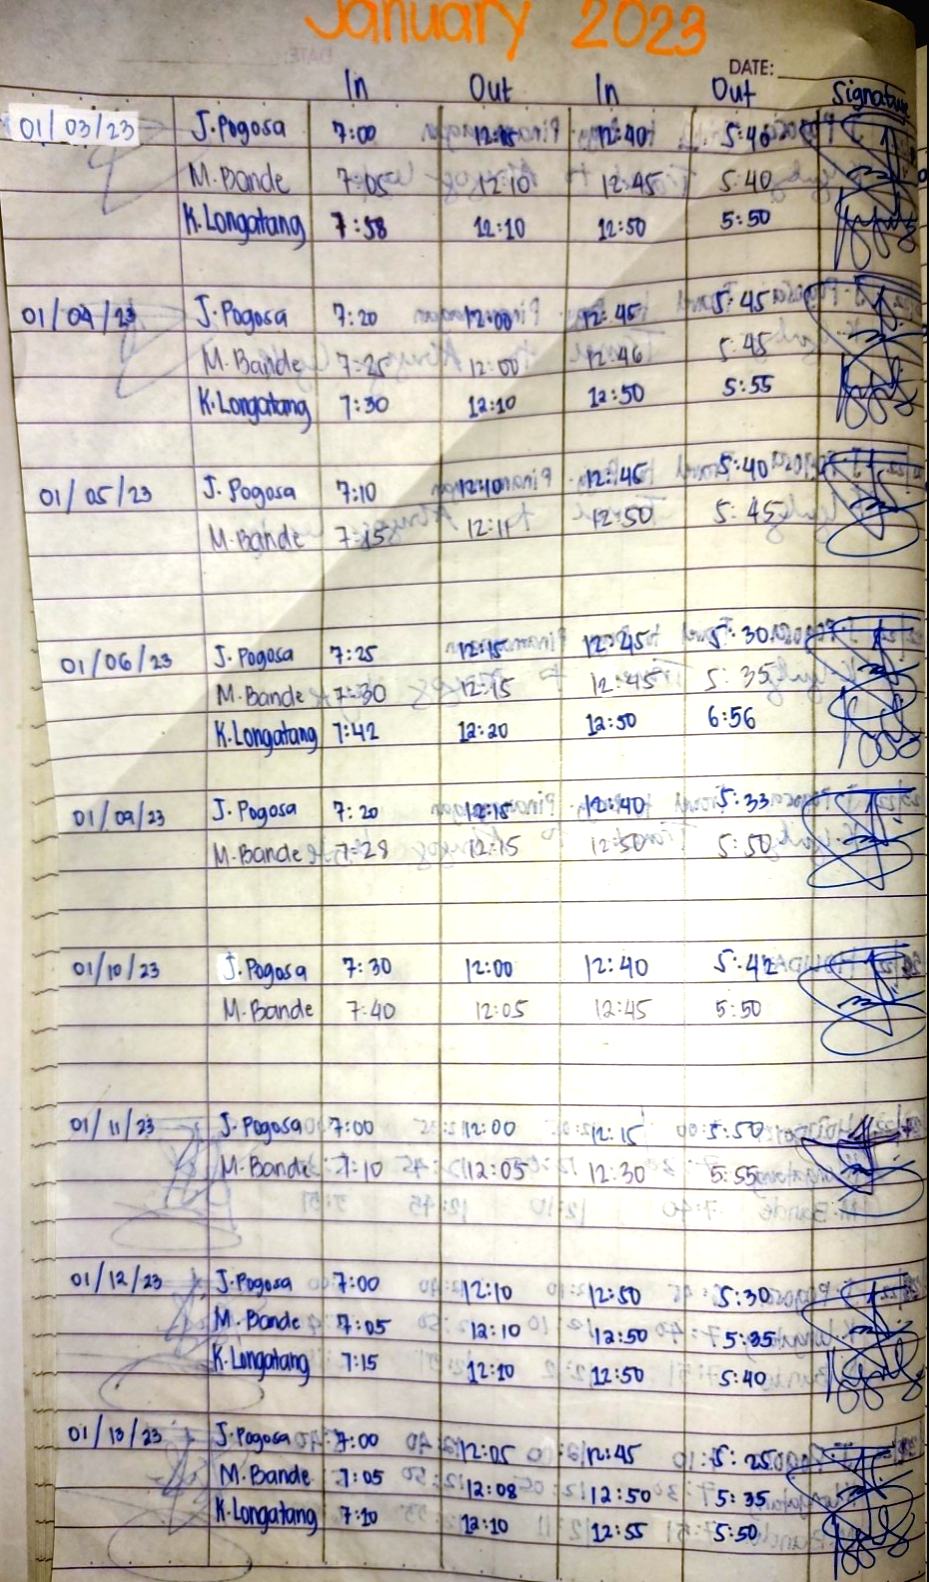 January 2023
DATE:
In Out In Out Signature
01/03/23 J. Pogosa 7:00 12:15 12:40 5:40
M. Bande 7:05 12:10 12:45 5:40
K. Longatang 7:58 12:10 12:50 5:50
01/04/23 J. Pogosa 7:20 12:00 12:45 5:45
M. Bande 7:25 12:00 12:46 5:45
K. Longatang 7:30 12:10 12:50 5:55
01/05/23 J. Pogosa 7:10 12:10 12:45 5:40
M. Bande 7:15 12:11 12:50 5:45
01/06/23 J. Pogosa 7:25 12:15 12:45 5:30
M. Bande 7:30 12:15 12:45 5:35
K. Longatang 7:42 12:20 12:50 6:56
01/09/23 J. Pogosa 7:20 12:15 12:40 5:33
M. Bande 7:28 12:15 12:50 5:50
01/10/23 J. Pogosa 7:30 12:00 12:40 5:42
M. Bande 7:40 12:05 12:45 5:50
01/11/23 J. Pogosa 7:00 12:00 12:15 5:50
M. Bande 7:10 12:05 12:30 5:55
01/12/23 J. Pogosa 7:00 12:10 12:50 5:30
M. Bande 7:05 12:10 12:50 5:35
K. Longatang 7:15 12:10 12:50 5:40
01/13/23 J. Pogosa 7:00 12:05 12:45 5:25
M. Bande 7:05 12:08 12:50 5:35
K. Longatang 7:10 12:10 12:55 5:50